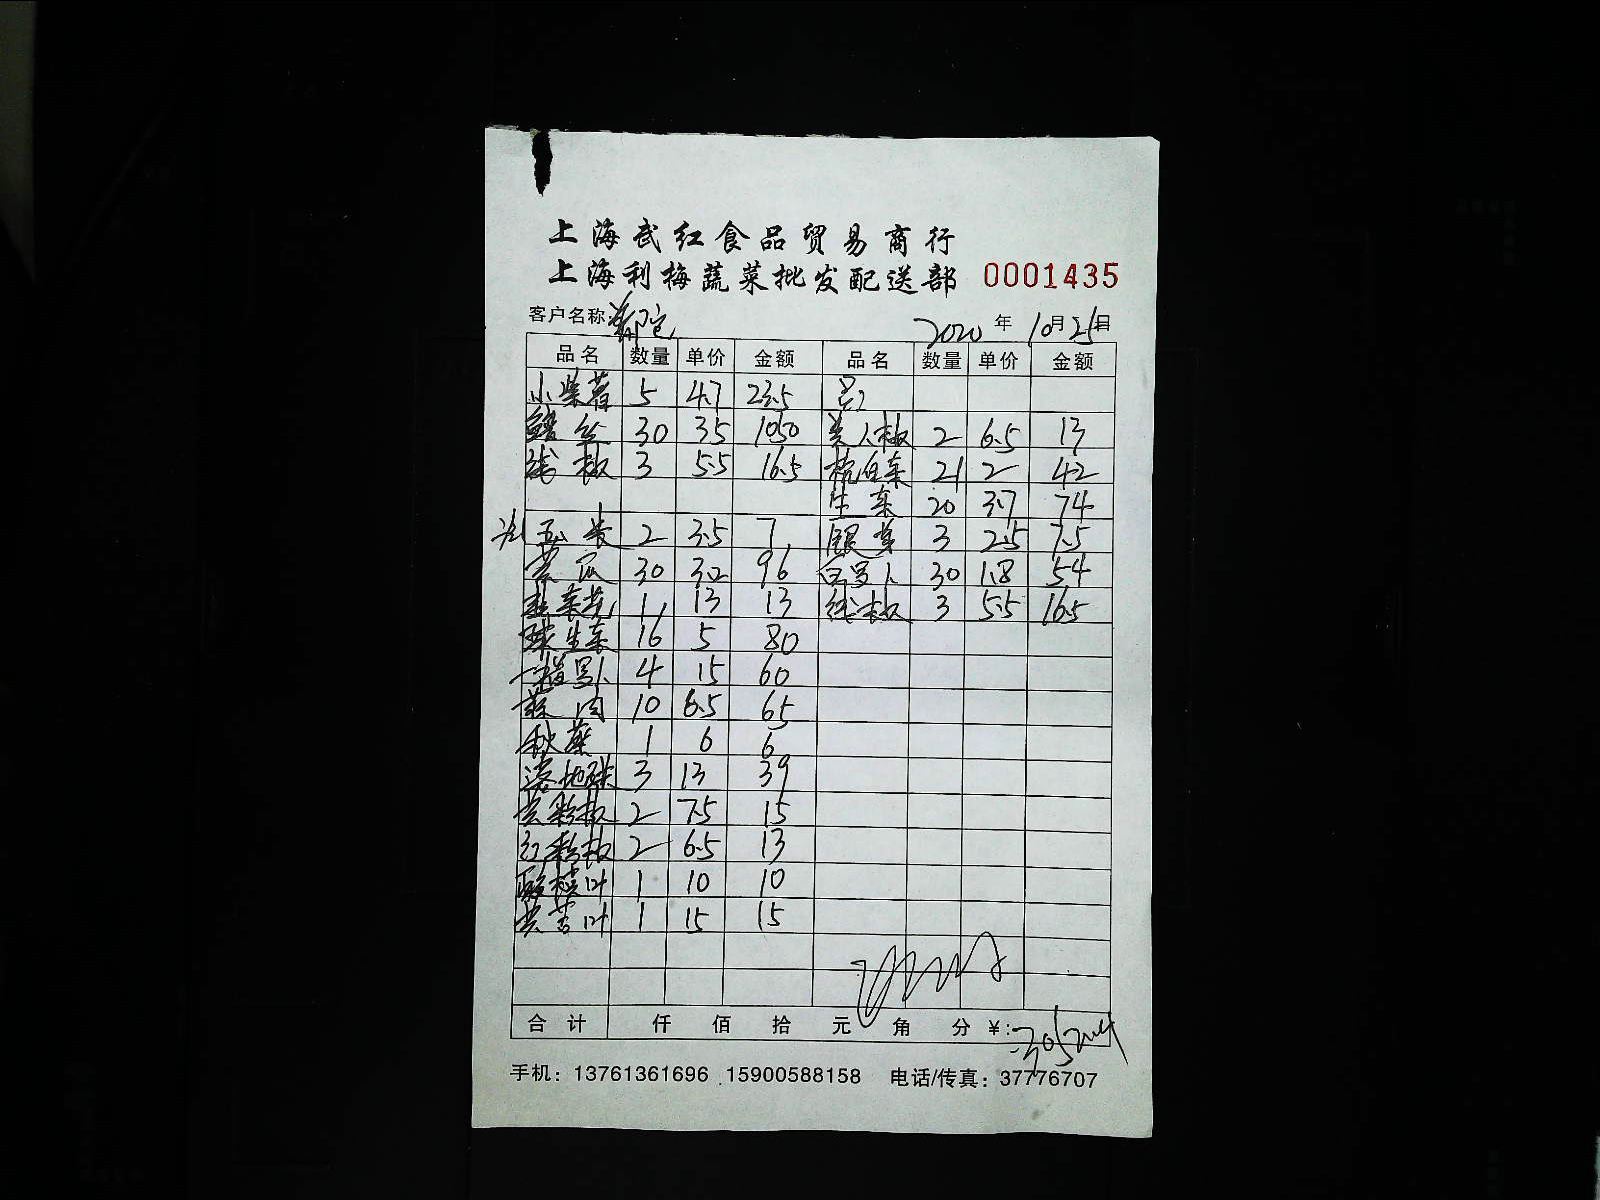 上海武红食品贸易商行
上海利梅蔬菜批发配送部 0001435
客户名称: 2020年10月25日
品名 数量 单价 金额 品名 数量 单价 金额
小紫薯 5 4.7 23.5
鳝丝 30 35 1050 美人椒 2 6.5 13
线椒 3 5.5 16.5 杭白菜 21 2 42
生菜 20 3.7 74
2 3.5 7 银芽 3 2.5 7.5
黄瓜 30 3.2 96 白罗卜 30 1.8 54
韭菜花 1 13 13 线椒 3 5.5 16.5
球生菜 16 5 80
4 15 60
蒜肉 10 6.5 65
秋葵 1 6 6
3 13 39
黄彩椒 2 7.5 15
红彩椒 2 6.5 13
1 10 10
黄苦叶 1 15 15
合计 仟 佰 拾 元 角 分 ¥:
手机: 13761361696 15900588158 电话/传真: 37776707